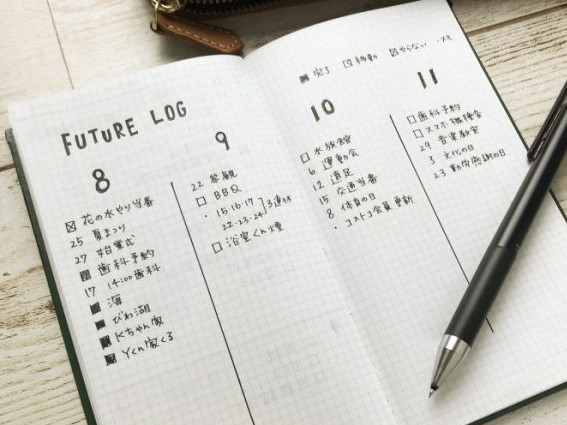 FUTURE LOG
8
☒ 花の水やり当番
25 夏まつり
27 始業式
■ 歯科予約
17 14:00歯科
■ 海
■ びわ湖
■ Kちゃん家
■ Yくん家くる
9
22 参観
□ BBQ
・ 15・16・17
22・23・24 3連休
□ 浴室くん煙
■ 完了 移動 やらない ・メモ
10
□ 水族館
6 運動会
12 遠足
15 交通当番
8 体育の日
・ コストコ会員更新
11
□ 歯科予約
□ スマホ機種
29 音楽教室
3 文化の日
23 勤労感謝の日